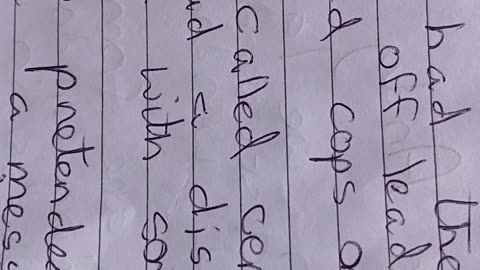 had the
off lead
d cops a
called cer
nd a dis
with so
pretende
a mess